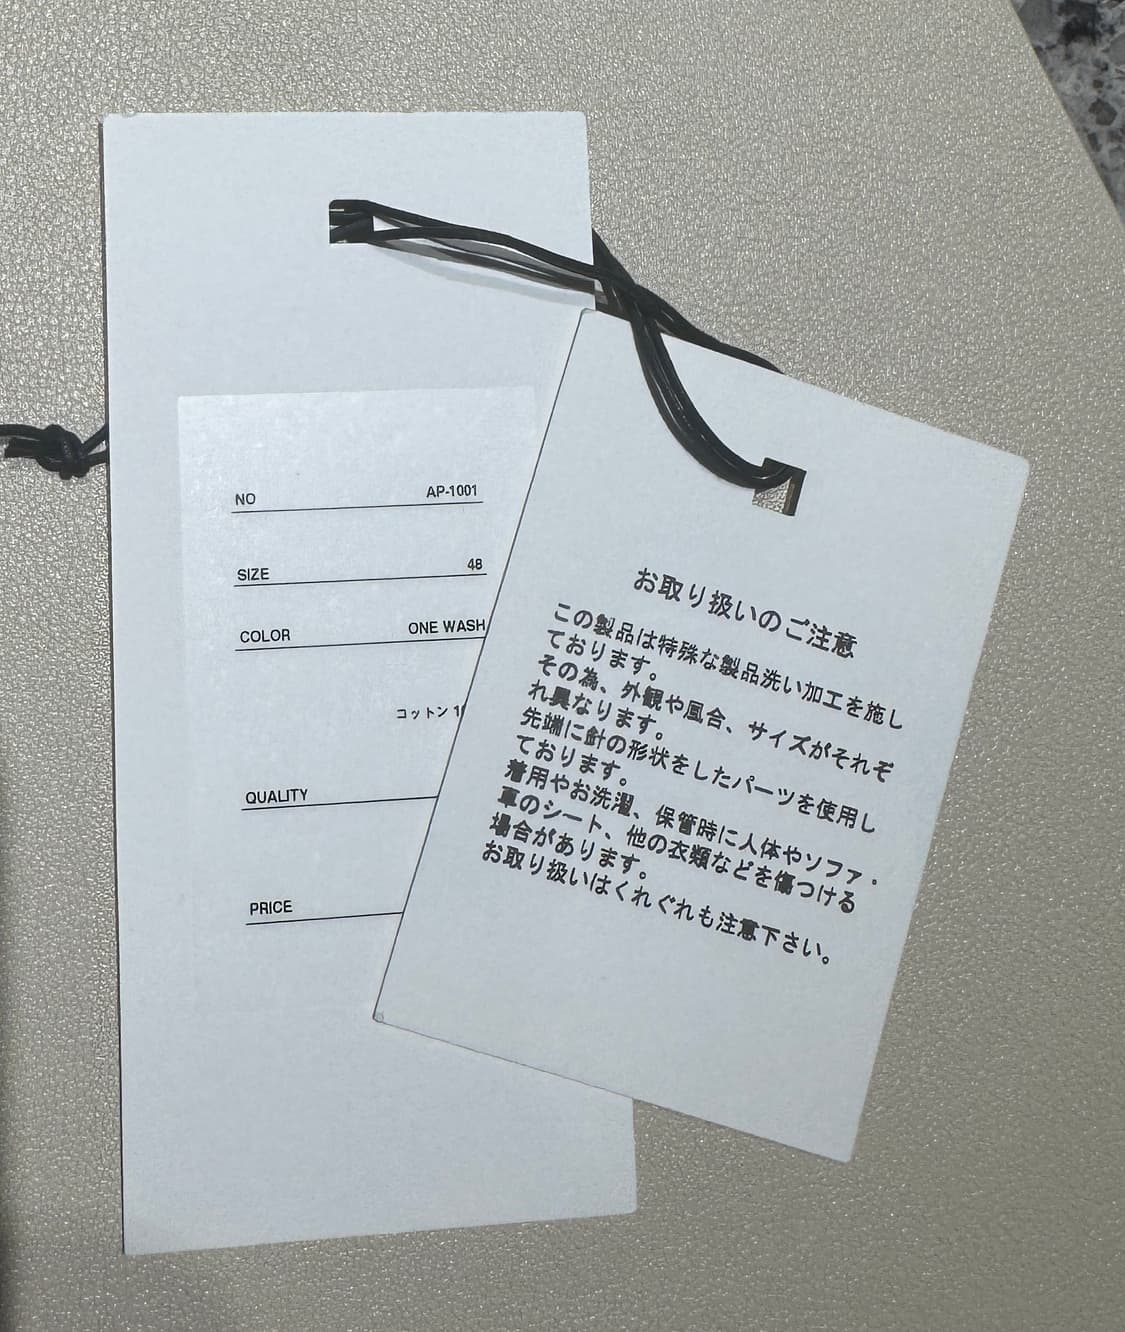 NO AP-1001
SIZE 48
COLOR ONE WASH
コットン
QUALITY
PRICE
お取り扱いのご注意
この製品は特殊な製品洗い加工を施し
ております。
その為、外観や風合、サイズがそれぞ
れ異なります。
先端に針の形状をしたパーツを使用し
ております。
着用やお洗濯、保管時に人体やソファ・
車のシート、他の衣類などを傷つける
場合があります。
お取り扱いはくれぐれも注意下さい。